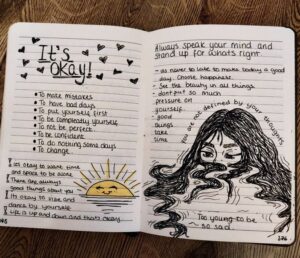 It's
okay!
• To make mistakes
• To have bad days
• To put yourself first
• To be completely yourself
• To not be perfect
• To be confident
• To do nothing some days
• To change
Its okay to want time
and space to be alone
There are always
good things about you
Its okay to vibe and
dance by yourself
Life is up and down and thats okay
Always speak your mind and
stand up for whats right.
- its never to late to make today a good
day. Choose happiness.
- See the beauty in all things.
dont put so much
pressure on
yourself.
good
things
take
time
You are not defined by your thoughts
Too young to be
so sad